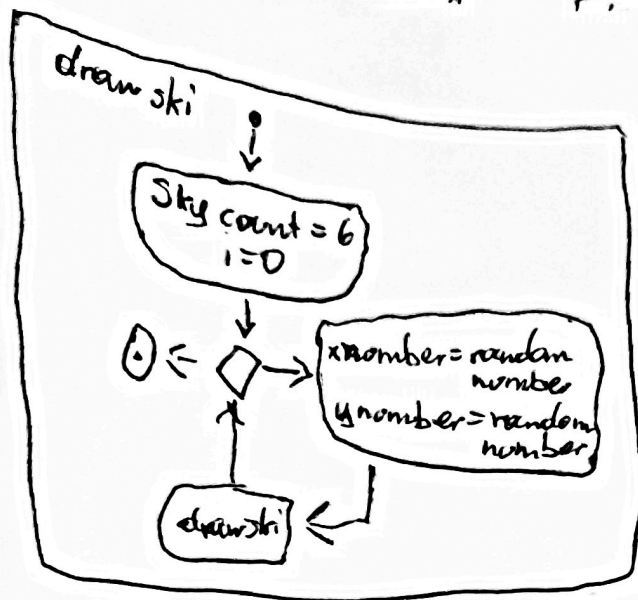 draw ski
Sky count = 6
i=0
xnomber = random
number
ynomber = random
number
drawski